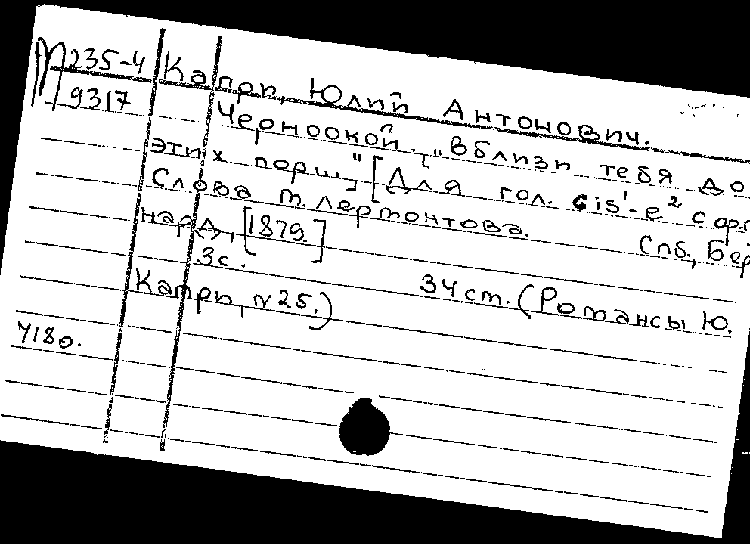 М 235-4
9317
Капри, Юлий Антонович.
Черноокой. „Вблизи тебя до
этих пор...“ [Для гол. cis¹-e² с фп.
Слова М. Лермонтова. Спб., Бер
нард, [1879]
3с. 34 cm. (Романсы Ю.
Капри, N 25.)
У180.